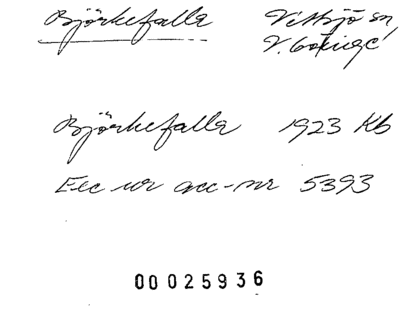 Björkefalla Vittsjö sn,
V. Göinge
Björkefalla 1923 Kb
Exc ur acc-nr 5393
00025936